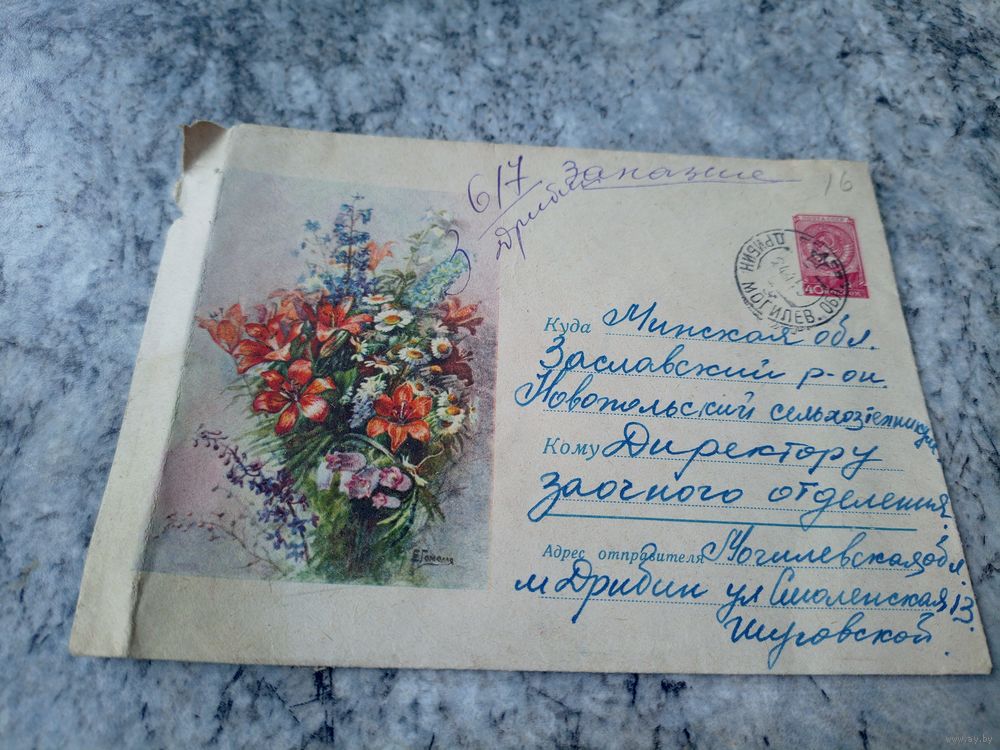 617 Заказное
Дрибин
16
ПОЧТА СССР
40
ДРИБИН МОГИЛЕВ. ОБЛ.
Куда Минская обл.
Заславский р-он.
Новопольский сельхозтехникум
Кому Директору
заочного отделения.
Адрес отправителя Могилевская обл.
м Дрибин ул Смоленская 13.
Шуговской.
www.ay.by